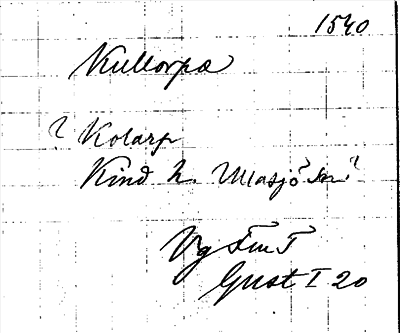 1540
Kullorpa
? Kolarp
Kind h. Ulasjö sn?
Vg
Gust I 20